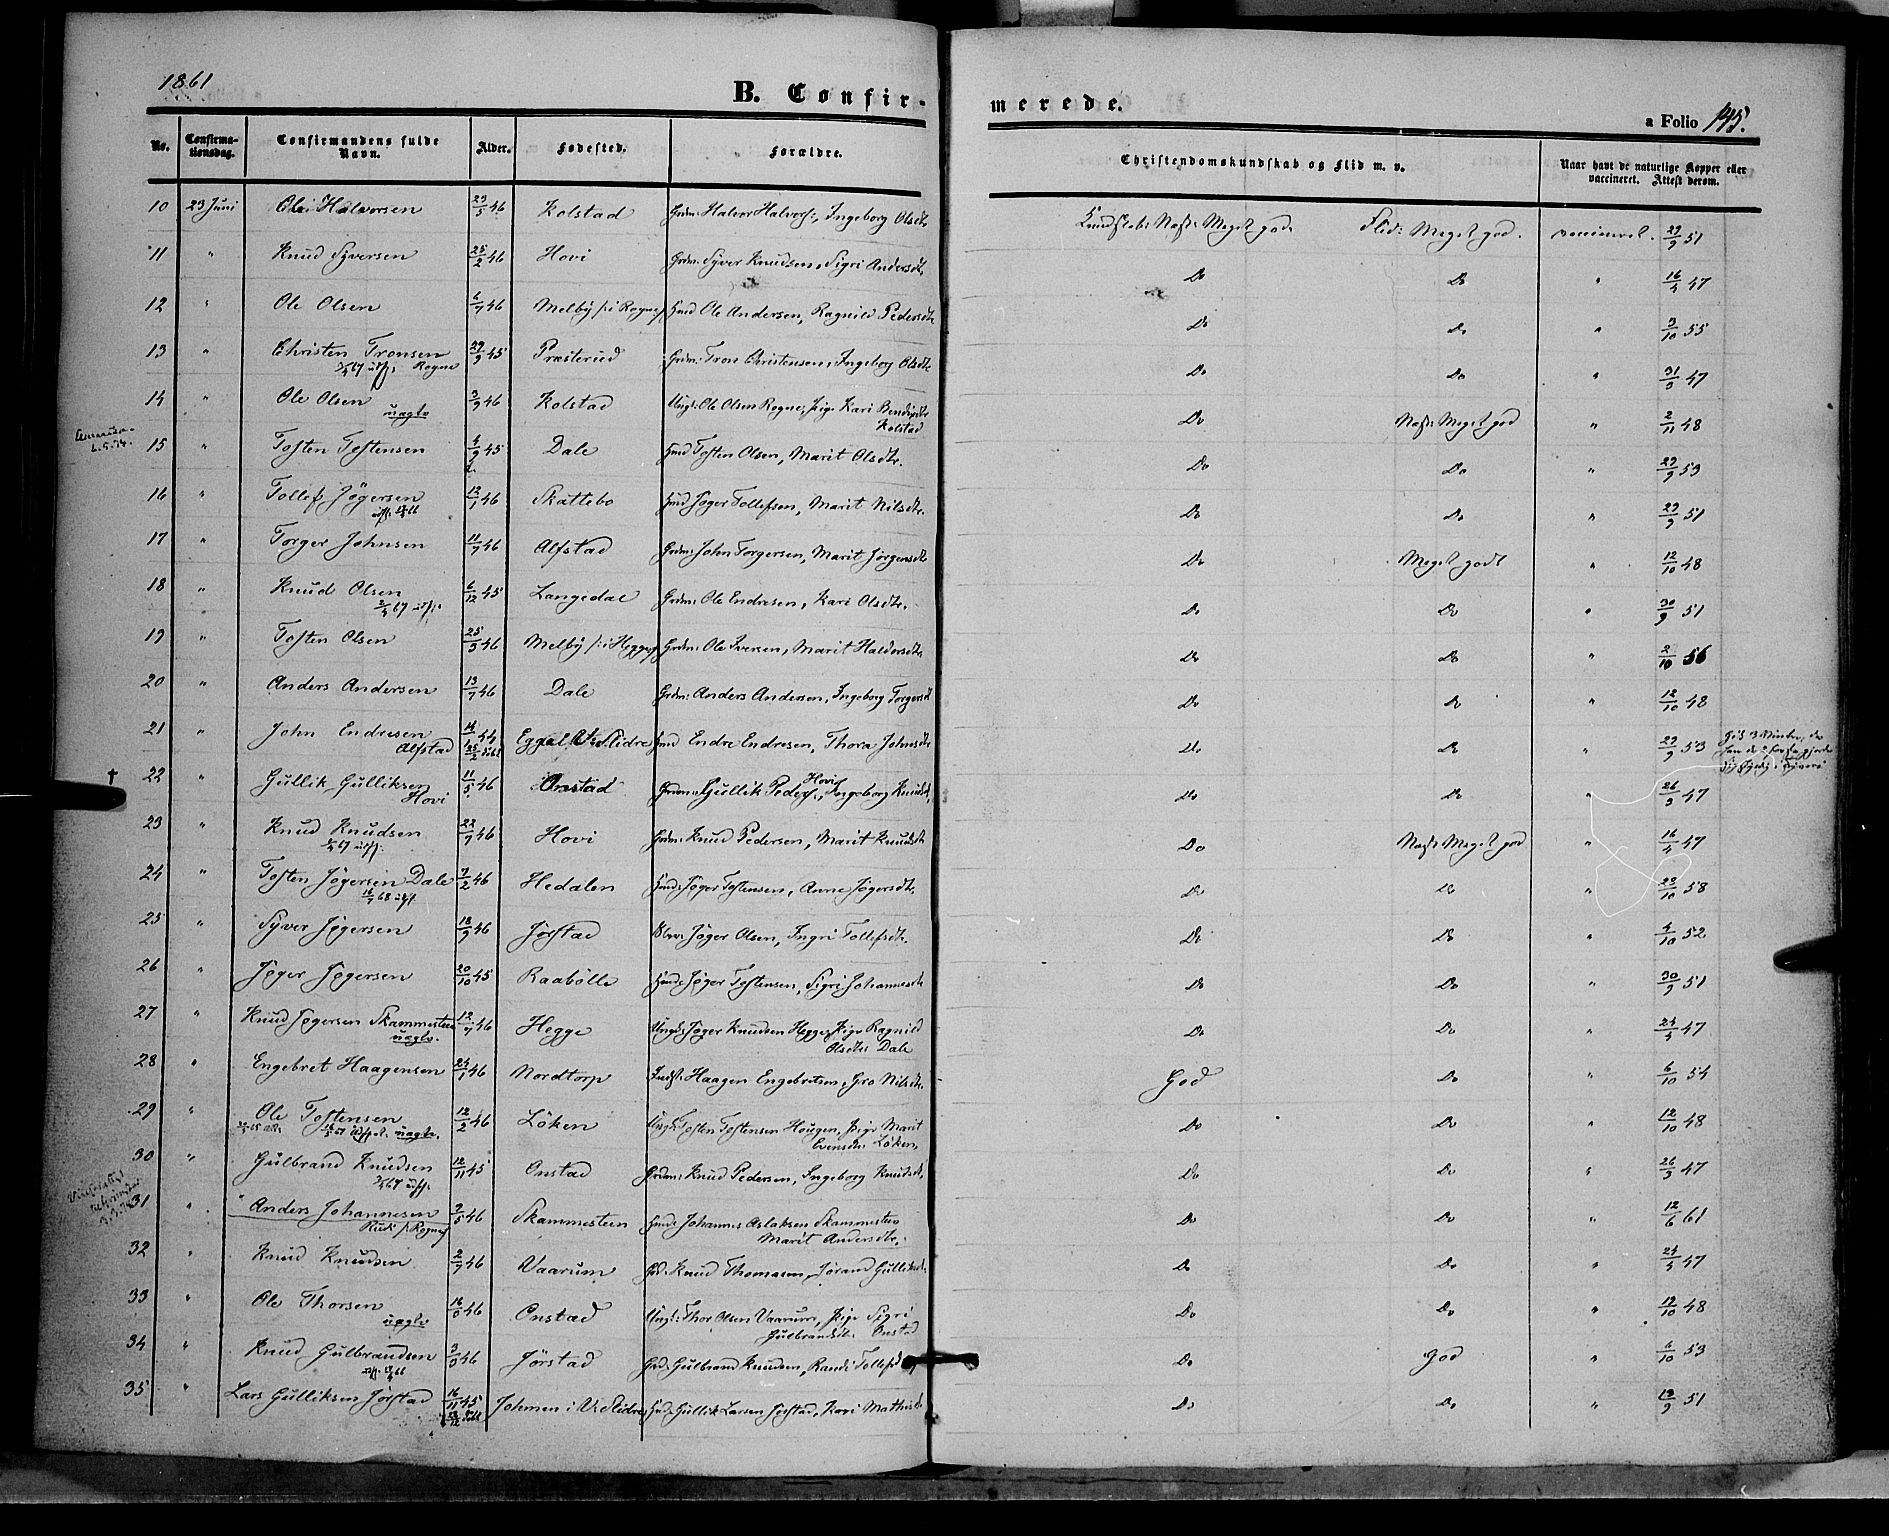 1861
B. Confirmerede.
a Folio 145.
No. Confirmationsdag. Confirmandens fulde Navn. Alder. Fødested. Forældre. Christendomskundskab og Flid m. v. Naar havt de naturlige Kopper eller vaccineret. Attest derom.
10 23 Juni Ole Halvorsen 23/5 46 Kolstad Grdm: Halvor Halvors:, Ingeborg Olsdtr Kundskab: Næst: Meget god. Flid: Meget god. vaccineret. 29/9 51
11 " Knud Syversen 25/2 46 Hovi Grdm: Syver Knudsen, Sigri Andersdtr. Do Do " 16/4 47
12 " Ole Olsen 6/7 46 Melby /: i Rogne/ Hmd Ole Andersen, Ragnild Pedersdtr Do Do " 3/10 55
13 " Christen Tronsen 29/9 45 Præsterud Grdm: Tron Christensen, Ingeborg Olsdtr Do Do " 31/3 47
Rogne
14 " Ole Olsen 3/9 46 Kolstad Ungk: Ole Olsen Rogne, Pige Kari Kolstad Do Næst: Meget god " 2/11 48
uægte
15 " Tosten Tostensen 4/9 45 Dale Hmd Tosten Olsen, Marit Olsdtr. Do Do " 29/9 53
16 " Tollef Jøgersen 12/7 46 Skattebo Hmd Jøger Tollefsen, Marit Nilsdtr. Do Do " 29/9 51
17 " Torger Johnsen 11/7 46 Alfstad Grdm: John Torgersen, Marit Jørgensdtr Do Meget godt " 12/10 48
18 " Knud Olsen 6/12 45 Langedal Grdm: Ole Endresen, Kari Olsdtr. Do Do " 30/9 51
19 " Tosten Olsen 25/3 46 Melby /: i Hegge/ Grdm: Ole Iversen, Marit Haldorsdtr. Do Do " 2/10 56
20 " Anders Andersen 13/7 46 Dale Grdm: Anders Andersen, Ingeborg Torgersdt Do Do " 12/10 48
21 " John Endresen Alfstad 44 V: Slidre Hmd Endre Endresen, Thora Johnsdtr Do Do " 29/9 53
22 " Gullik Gulliksen Hovi 11/5 46 Onstad Grdm: Gullik Peders: Hovi, Ingeborg Knudsdt. Do Do " 26/3 47
23 " Knud Knudsen 22/7 46 Hovi Grdm: Knud Pedersen, Marit Knudsdt Do Næst: Meget god " 16/4 47
24 " Tosten Jøgersen Dale 7/2 46 Hedalen Hmd: Jøger Tostensen, Anne Jøgersdtr. Do Do " 23/10 58
25 " Syver Jøgersen 18/9 46 Jørstad Jøger Olsen, Ingri Tollefsdtr. Do Do " 4/10 52
26 " Jøger Jøgersen 20/10 45 Raabølle Hmd: Jøger Tostensen, Sigri Johannesdt Do Do " 30/9 51
27 " Knud Jøgersen Skammesteen 12/7 46 Hegge Ungk: Jøger Knudsen Hegge, Pige Ragnild Olsdtr Dale Do Do " 24/4 47
uægte.
28 " Engebret Haagensen 24/1 46 Nordtorp Indst: Haagen Engebretsen, Gro Nilsdtr. God Do " 6/10 54
29 " Ole Tostensen 12/2 46 Løken Ungk: Tosten Tostensen Hougen, Pige Marit Evensdtr Løken, Do Do " 12/10 48
uægte.
30 " Gulbrand Knudsen 12/11 45 Onstad Grdm: Knud Pedersen, Ingeborg Knudsdt. Do Do " 26/3 47
31 " Anders Johannesen 2/5 46 Skammesteen Hmd: Johannes Aslaksen Skammesteen Marit Andersdtr. Do Do " 12/6 61
32 " Knud Knudsen 2/7 46 Vaarum Grd: Knud Thomasen, Jørand Gulliksdt. Do Do " 24/4 47
33 " Ole Thorsen 16/3 46 Onstad Ungk: Thor Olsen Vaarum, Pige Sigri Gulbrandsdtr Onstad Do Do " 12/10 48
uægte
34 " Knud Gulbrandsen 3/3 46 Jørstad Grd: Gulbrand Knudsen, Randi Tollefsd Do God " 6/10 53
35 " Lars Gulliksen Jørstad 16/11 45 Johmen i V: Slidre Hmd: Gullik Larsen Jørstad, Kari Mathisdt Do Do " 13/9 51